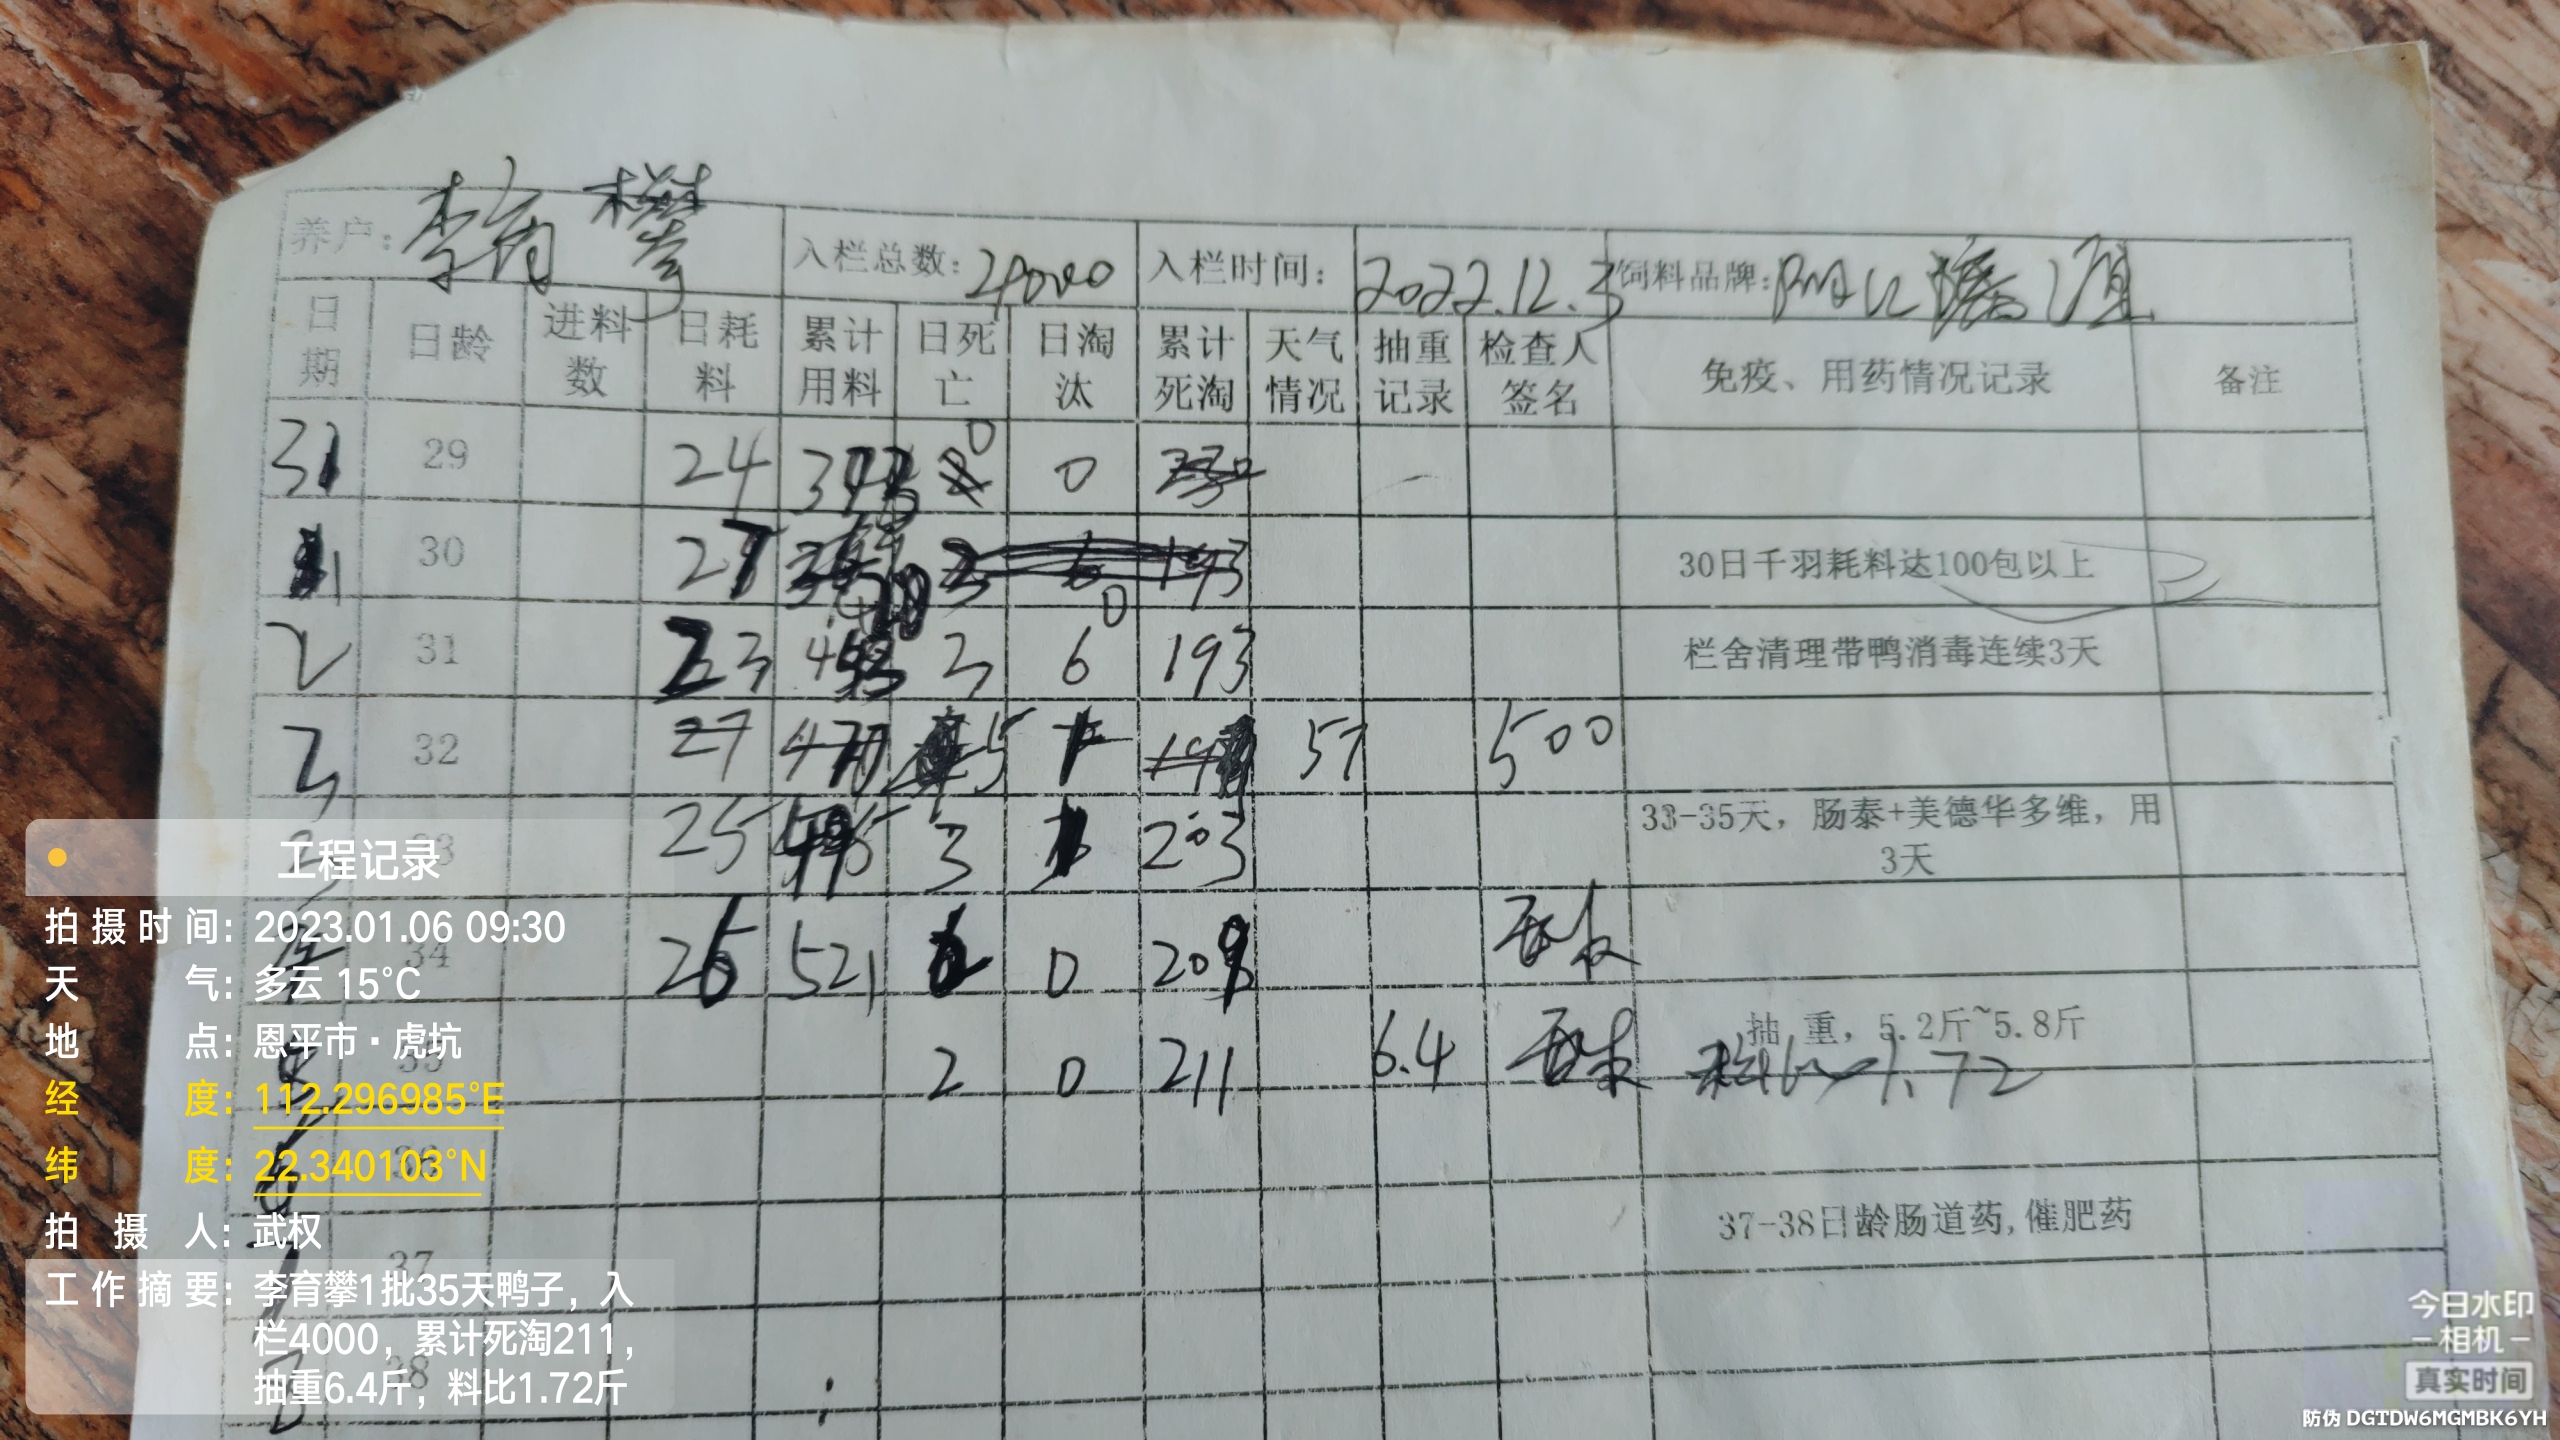 养户: 李育攀 入栏总数: 4000 入栏时间: 2022.12.3 饲料品牌:
日期 日龄 进料数 日耗料 累计用料 日死亡 日淘汰 累计死淘 天气情况 抽重记录 检查人签名 免疫、用药情况记录 备注
31 29 24 0 0
1 30 27 30日千羽耗料达100包以上
2 31 23 3 6 193 栏舍清理带鸭消毒连续3天
3 32 27 477 5 57 500
33 25 3 203 33-35天，肠泰+美德华多维，用
3天
34 26 521 6 0 209
35 2 0 211 6.4 抽 重，5.2斤~5.8斤
料比 1.72
36
37 37-38日龄肠道药,催肥药
38
工程记录
拍摄时间: 2023.01.06 09:30
天气: 多云 15°C
地点: 恩平市·虎坑
经度: 112.296985°E
纬度: 22.340103°N
拍摄人: 武权
工作摘要: 李育攀1批35天鸭子，入
栏4000，累计死淘211，
抽重6.4斤，料比1.72斤
今日水印
相机
真实时间
防伪 DGTDW6MGMBK6YH